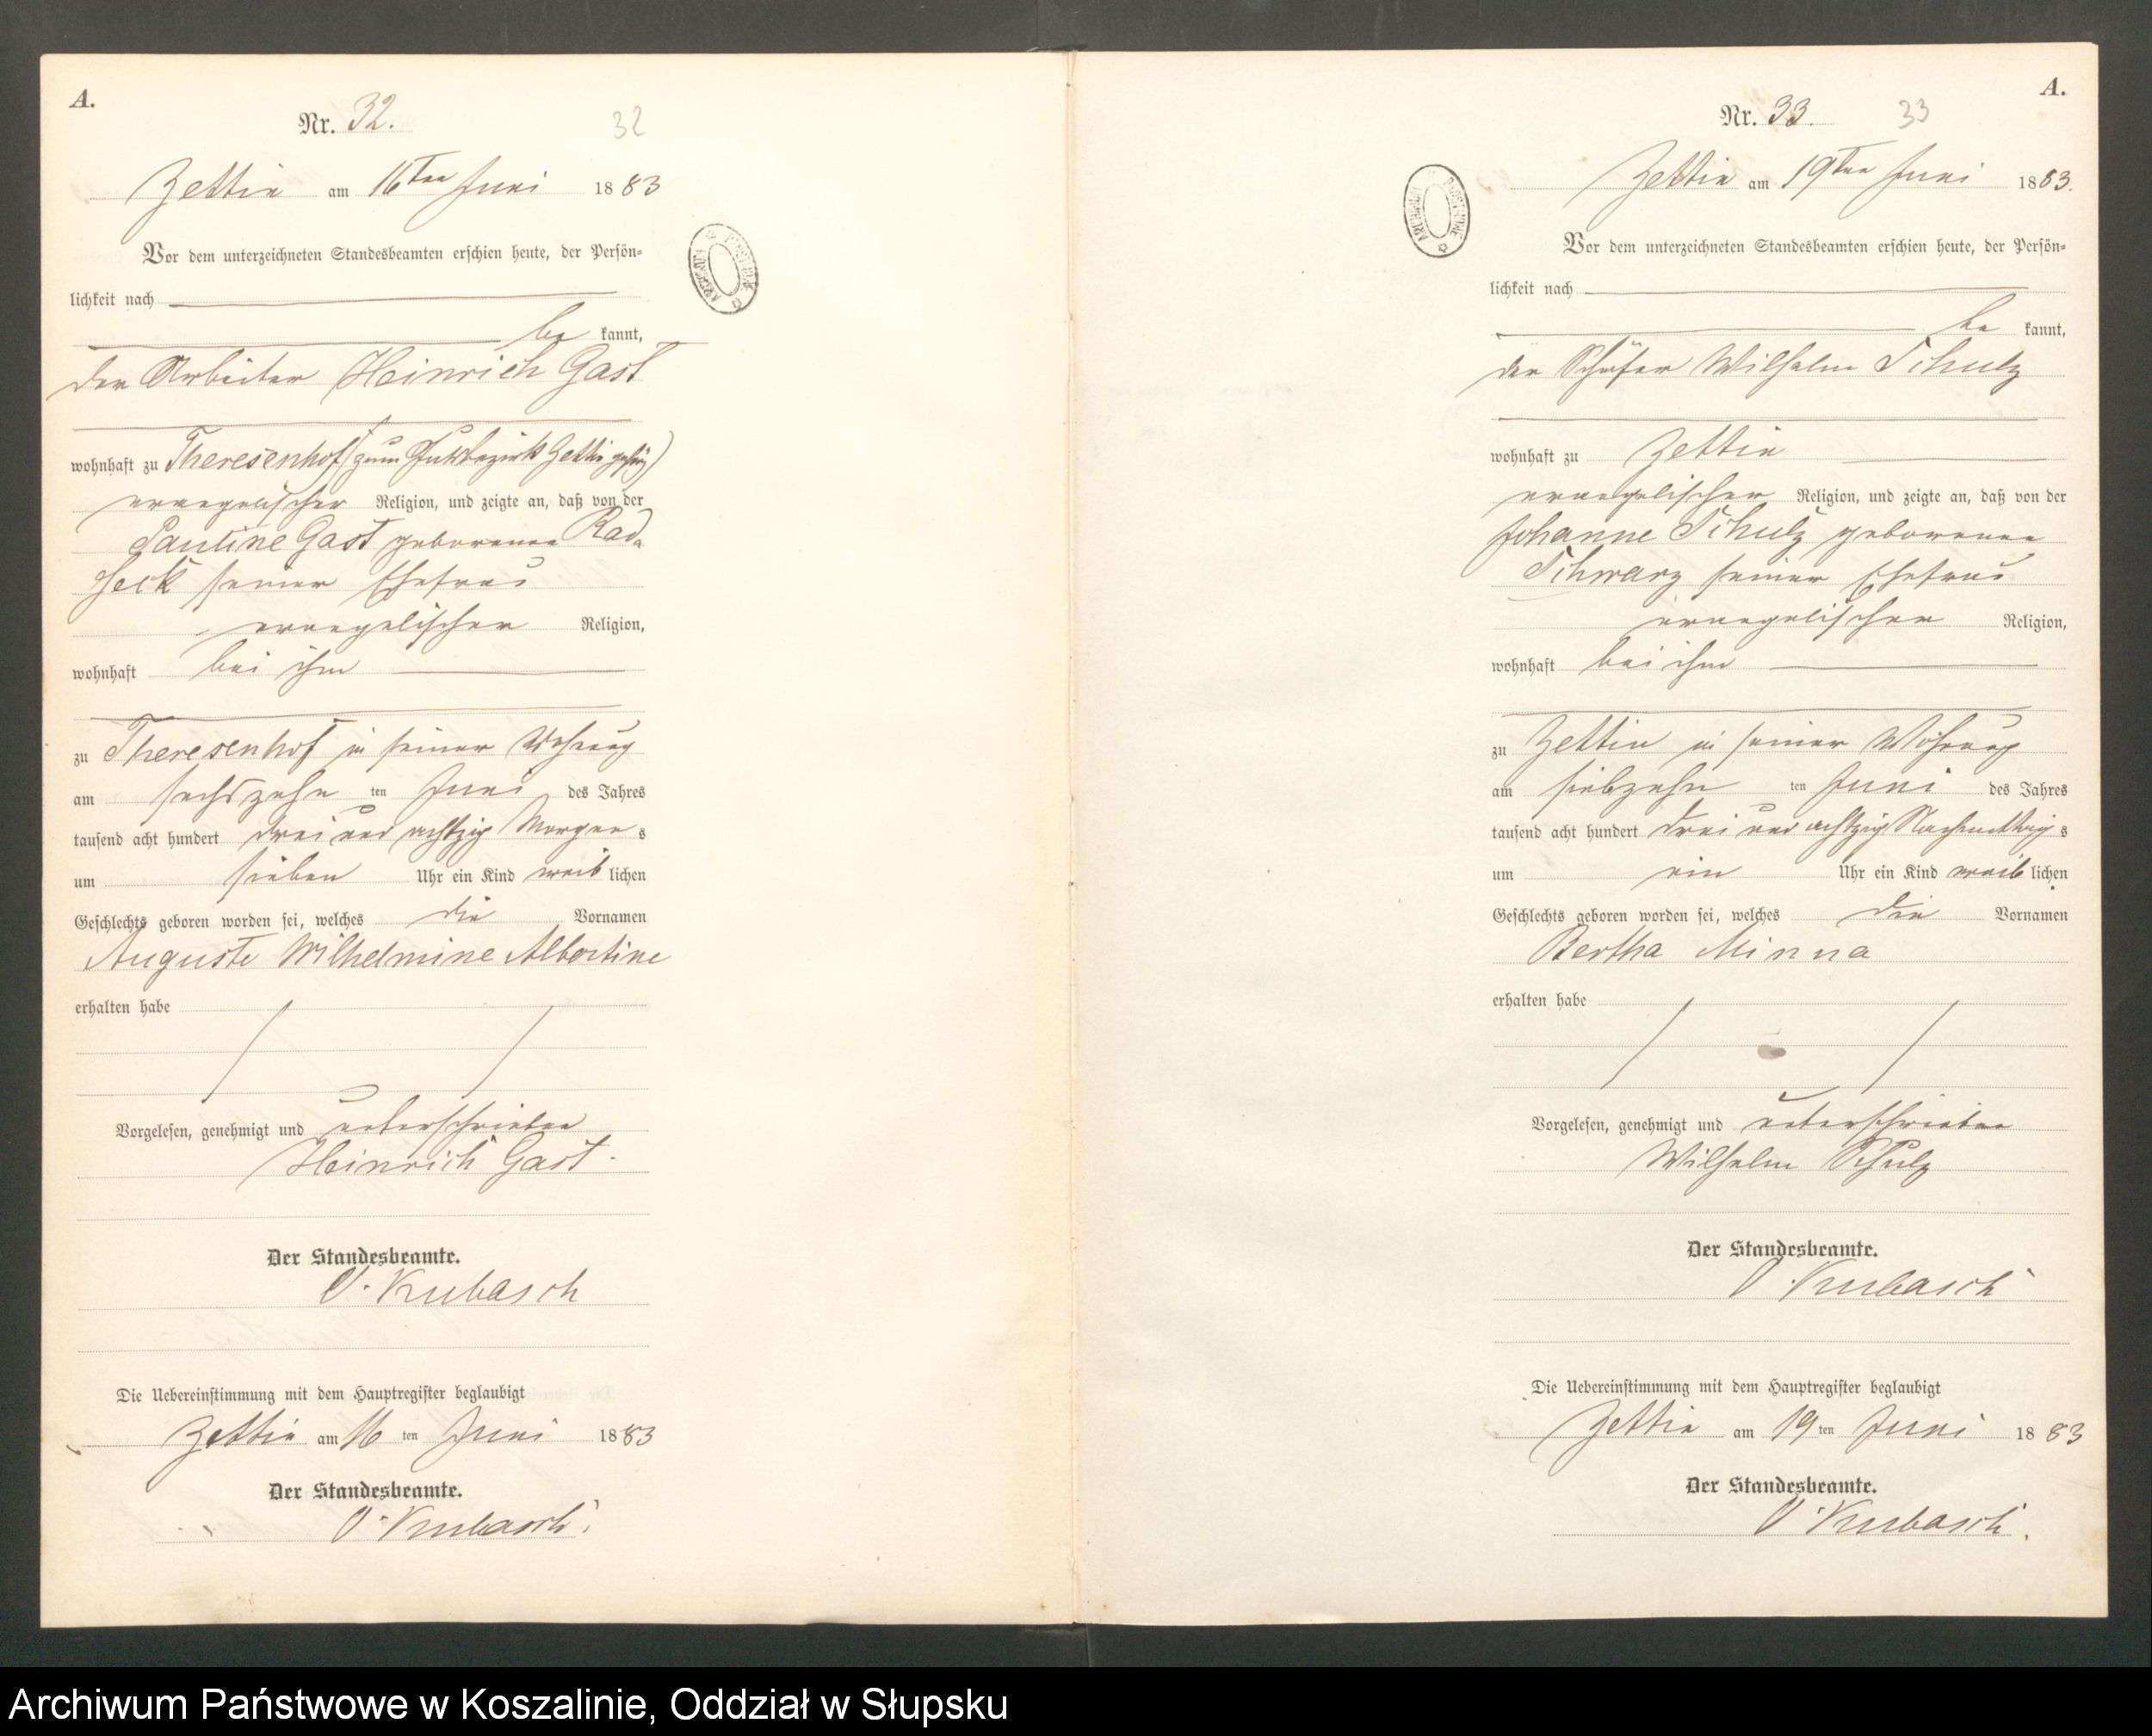 A.
Nr. 32.
32
Zettin am 16ten Juni 1883
Vor dem unterzeichneten Standesbeamten erschien heute, der Persön-
lichkeit nach
be kannt,
der Arbeiter Heinrich Gast
wohnhaft zu Theresenhof (zum Gutsbezirk Zettin gehörig)
evangelischer Religion, und zeigte an, daß von der
Pauline Gast geborenen Rad-
seck seiner Ehefrau
evangelischer Religion,
wohnhaft bei ihm
zu Theresenhof in seiner Wohnung
am sechszehn ten Juni des Jahres
tausend acht hundert drei und achtzig Morgen s
um sieben Uhr ein Kind weib lichen
Geschlechts geboren worden sei, welches die Vornamen
Auguste Wilhelmine Albertine
erhalten habe
Vorgelesen, genehmigt und unterschrieben
Heinrich Gast.
Der Standesbeamte.
V. Kubasch
Die Uebereinstimmung mit dem Hauptregister beglaubigt
Zettin am 16 ten Juni 1883
Der Standesbeamte.
V. Kubasch.
A.
Nr. 33.
33
Zettin am 19ten Juni 1883.
Vor dem unterzeichneten Standesbeamten erschien heute, der Persön-
lichkeit nach
be kannt,
der Schäfer Wilhelm Schulz
wohnhaft zu Zettin
evangelischer Religion, und zeigte an, daß von der
Johanne Schulz geborenen
Schwarz seiner Ehefrau
evangelischer Religion,
wohnhaft bei ihm
zu Zettin in seiner Wohnung
am siebzehn ten Juni des Jahres
tausend acht hundert drei und achtzig Nachmittag s
um ein Uhr ein Kind weib lichen
Geschlechts geboren worden sei, welches die Vornamen
Bertha Minna
erhalten habe
Vorgelesen, genehmigt und unterschrieben
Wilhelm Schulz
Der Standesbeamte.
V. Kubasch
Die Uebereinstimmung mit dem Hauptregister beglaubigt
Zettin am 19 ten Juni 1883
Der Standesbeamte.
V. Kubasch.
Archiwum Państwowe w Koszalinie, Oddział w Słupsku